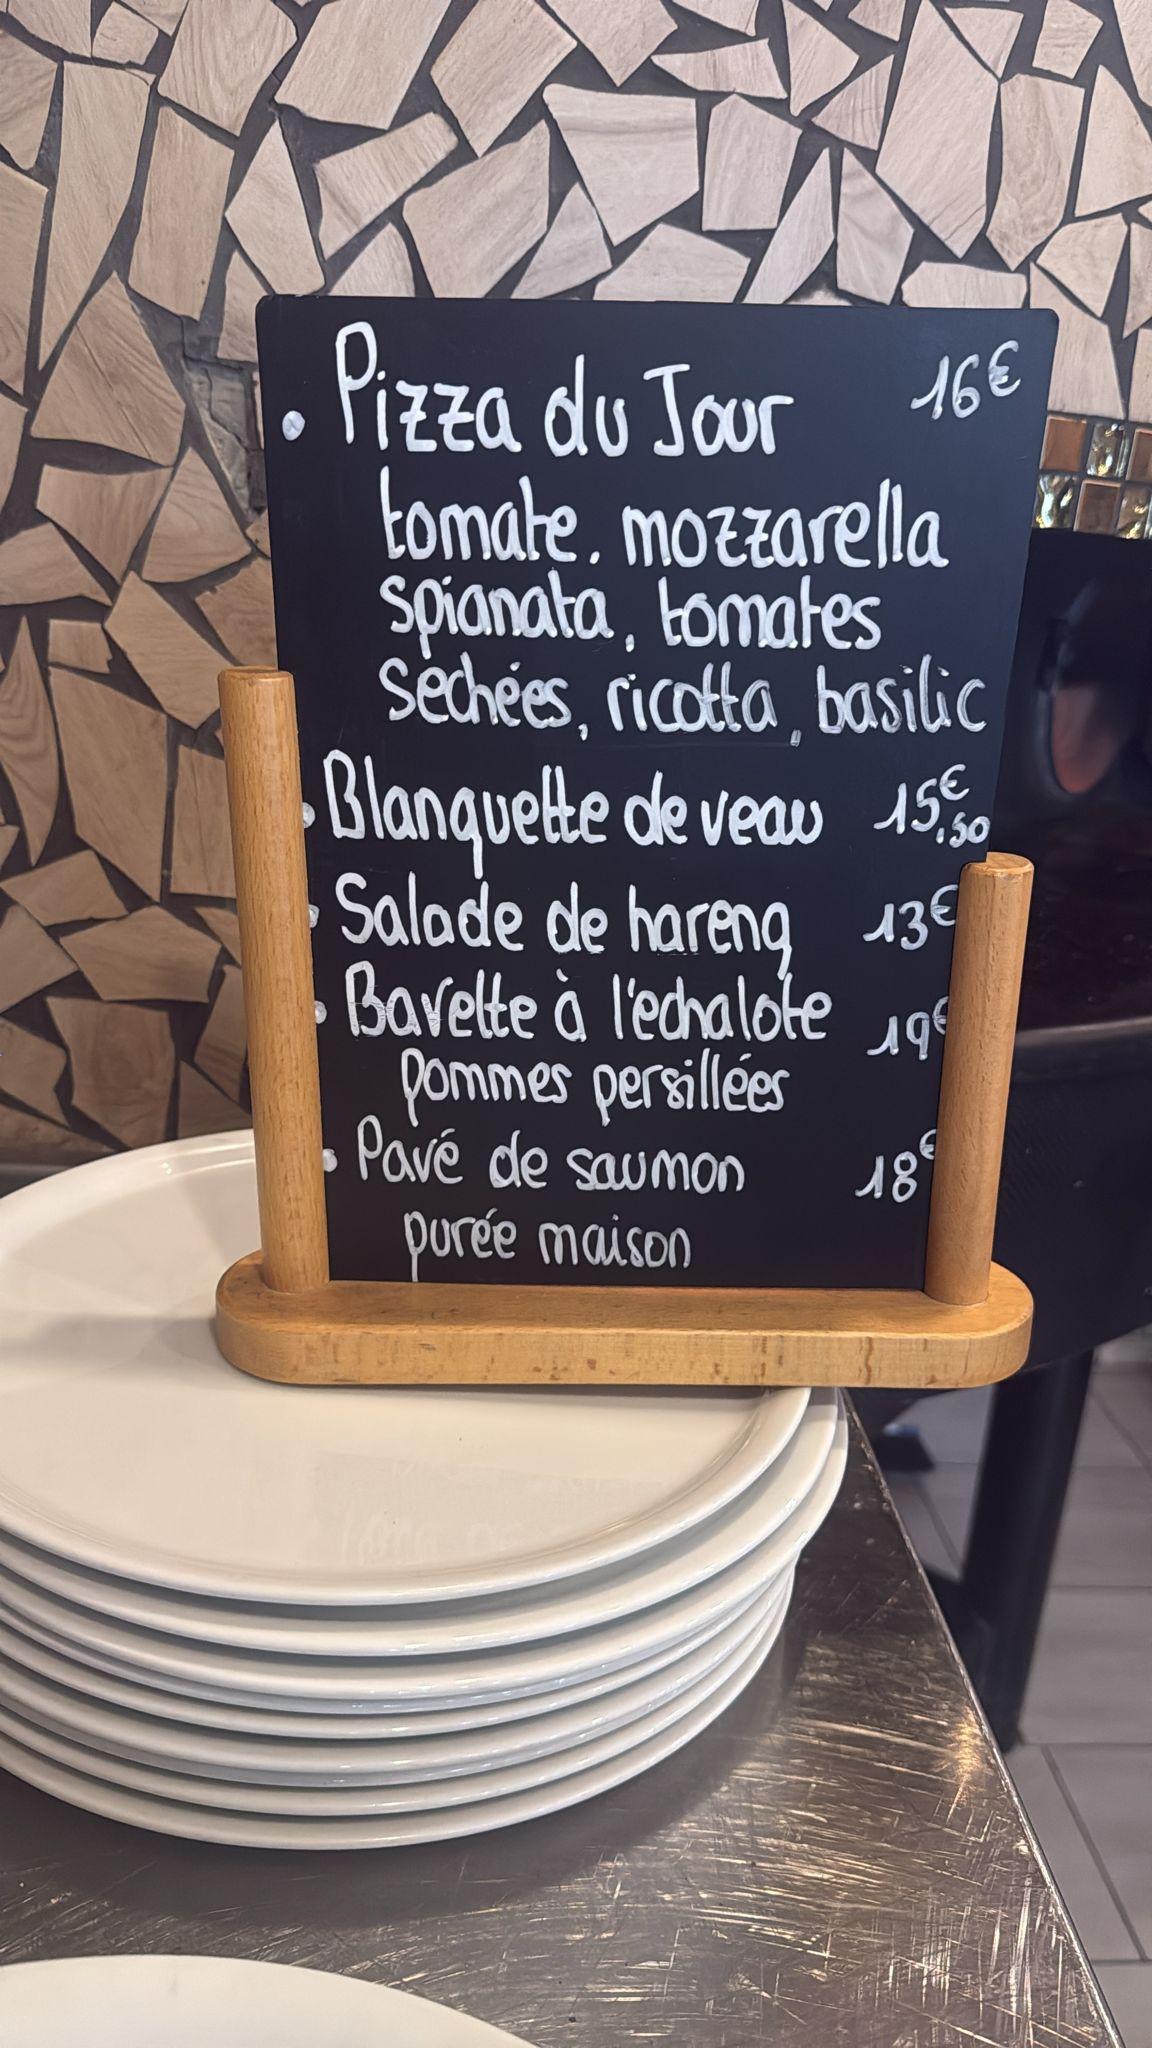 • Pizza du Jour 16€
tomate. mozzarella
spianata, tomates
sechées, ricotta, basilic
• Blanquette de veau 15,50€
• Salade de hareng 13€
• Bavette à l'echalote 19€
pommes persillées
• Pavé de saumon 18€
purée maison